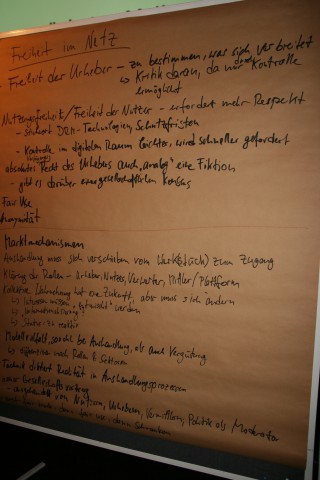 Freiheit im Netz
- Freiheit der Urheber - zu bestimmen, was sich verbreitet
↳ Kritik daran, da nur Kontrolle
ermöglicht
Nutzungsfreiheit/Freiheit der Nutzer - erfordert mehr Respekt
- DRM-Technologien, Schutzfristen
- Kontrolle im digitalen Raum leichter, wird schneller gefordert
absolutes Recht des Urhebers auch „analog" eine Fiktion
- gibt es darüber einen gesellschaftlichen Konsens
Fair Use
Anonymität
Marktmechanismen
Aushandlung muss sich verschieben vom Werk(stück) zum Zugang
Klärung der Rollen - Urheber, Nutzer, Verwerter, Mittler/Plattform
Kollektive hat eine Zukunft, aber muss sich ändern
↳ müssen werden
↳
↳
Modellvielfalt, sowohl bei Aushandlung, als auch Vergütung
↳ nach Rollen & Sektoren
Technik diktiert Realität in Aushandlungsprozessen
neuer Gesellschaftsvertrag
- ausgehandelt von Nutzern, Urhebern, Vermittlern, Politik als Moderator